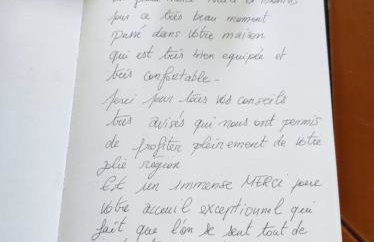 pour ce très beau moment
passé dans votre maison
qui est très bien equipée et
très confortable -
pour tous vos conseils
très avisés qui nous ont permis
de profiter pleinement de votre
jolie région
Et un immense MERCI pour
votre accueil exceptionnel qui
fait que l'on se sent tout de